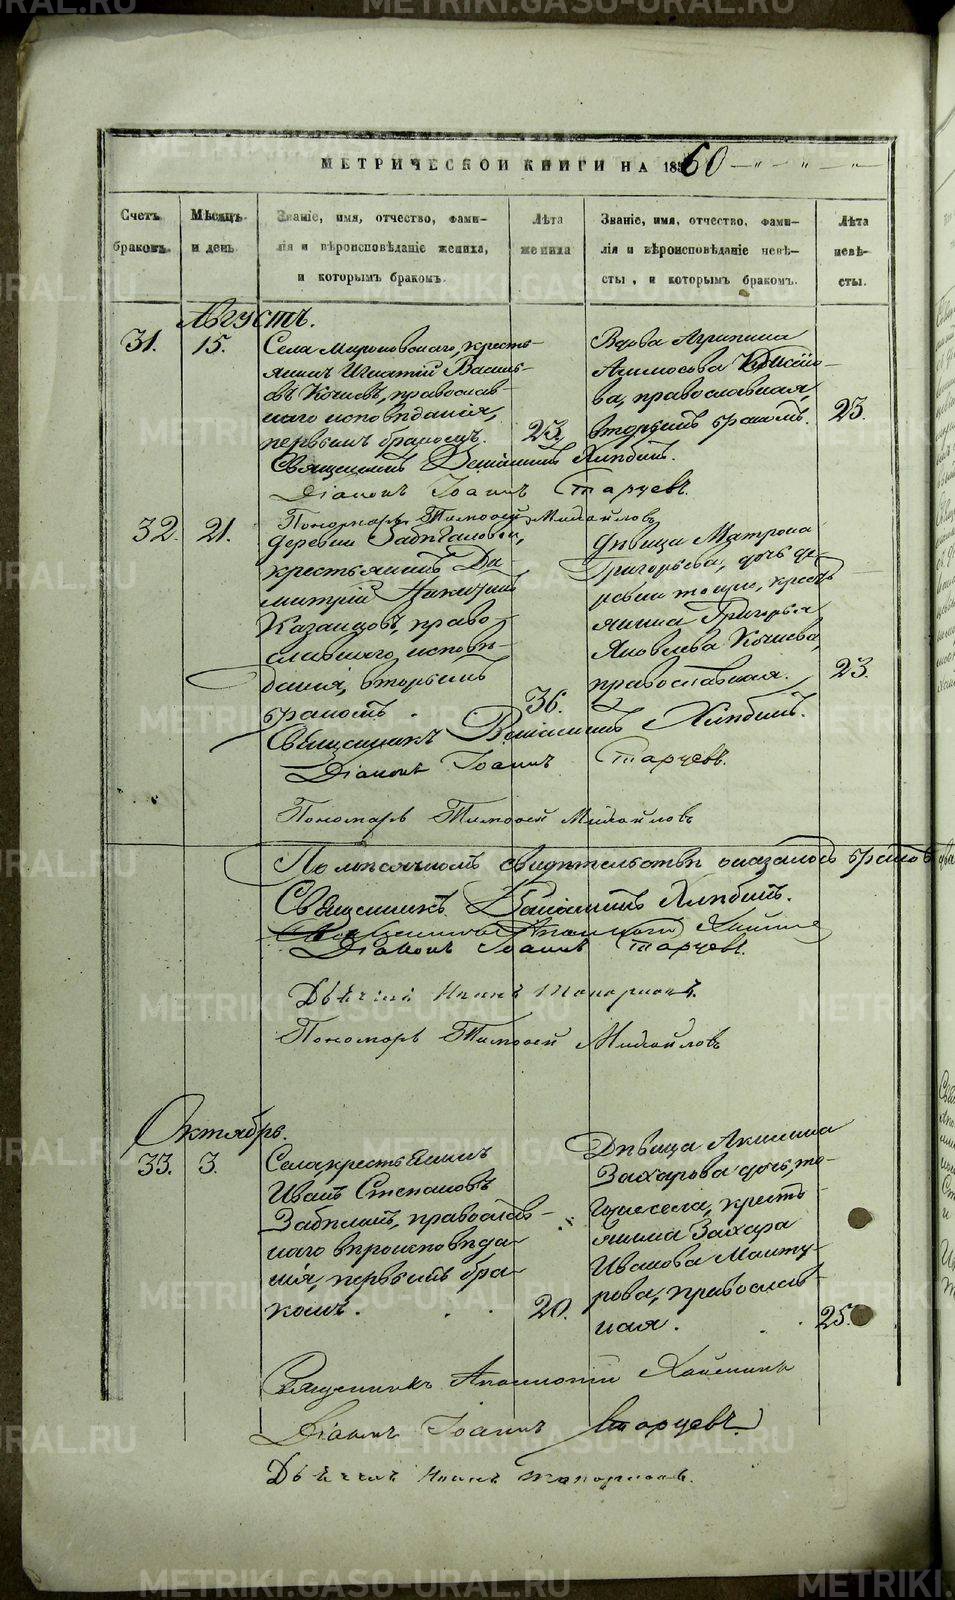 МЕТРИЧЕСКОЙ КНИГИ НА 1860
Счетъ браковъ.
Мѣсяцъ и день
Званіе, имя, отчество, фами-
лія и вѣроисповѣданіе жениха,
и которымъ бракомъ.
Лѣта жениха
Званіе, имя, отчество, фами-
лія и вѣроисповѣданіе невѣ-
сты, и которымъ бракомъ.
Лѣта невѣ-
сты.
Августъ.
31.
15.
Села Мироновскаго, кресть-
янинъ Игнатій Василь-
евъ Кочневъ, православ-
наго исповѣданія,
первымъ бракомъ.
23.
Вдова Агрипина
православная,
вторымъ бракомъ.
23.
Священникъ Веніаминъ Хлѣбинъ.
Діаконъ Іоаннъ Старцевъ.
Пономарь Тимоѳей Михайловъ
32.
21.
Деревни
крестьянинъ Ди-
митрій Никитинъ
Казанцовъ, право-
славнаго исповѣ-
данія, вторымъ
бракомъ.
36.
Дѣвица Матрона
Григорьева, дочь де-
ревни тоижъ, кресть-
янина Григорья
Яковлева Кочнева,
православная.
23.
Священникъ Веніаминъ Хлѣбинъ.
Діаконъ Іоаннъ Старцевъ.
Пономарь Тимоѳей Михайловъ
По мѣсячномъ свидѣтельствѣ оказалось браковъ два
Священникъ Веніаминъ Хлѣбинъ.
Діаконъ Іоаннъ Старцевъ.
Дьячекъ Иванъ Топорковъ.
Пономарь Тимоѳей Михайловъ
Октябрь.
33.
3.
Села крестьянинъ
Иванъ Степановъ
Забѣлинъ, православ-
наго вѣроисповѣда-
нія, первымъ бра-
комъ.
20.
Дѣвица Акилина
Захарова дочь, то-
гоже села, кресть-
янина Захара
Иванова Манту-
рова, православ-
ная.
25.
Священникъ Анатолій
Діаконъ Іоаннъ Старцевъ
Дьячекъ Иванъ Топорковъ.
METRIKI.GASO-URAL.RU